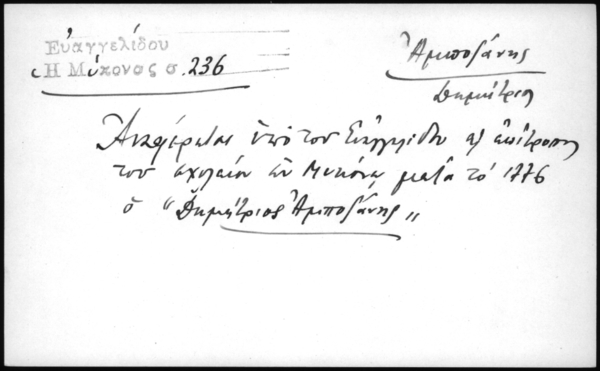 Εὐαγγελίδου
Ἡ Μύκονος σ. 236
Ἀμποζάνης
Δημήτριος
Ἀναφέρεται ὑπὸ του Εὐαγγελίδου ὡς ἐπίτροπος
του σχολείου ἐν Μυκόνῳ μετὰ τὸ 1776
ὁ "Δημήτριος Ἀμποζάνης"